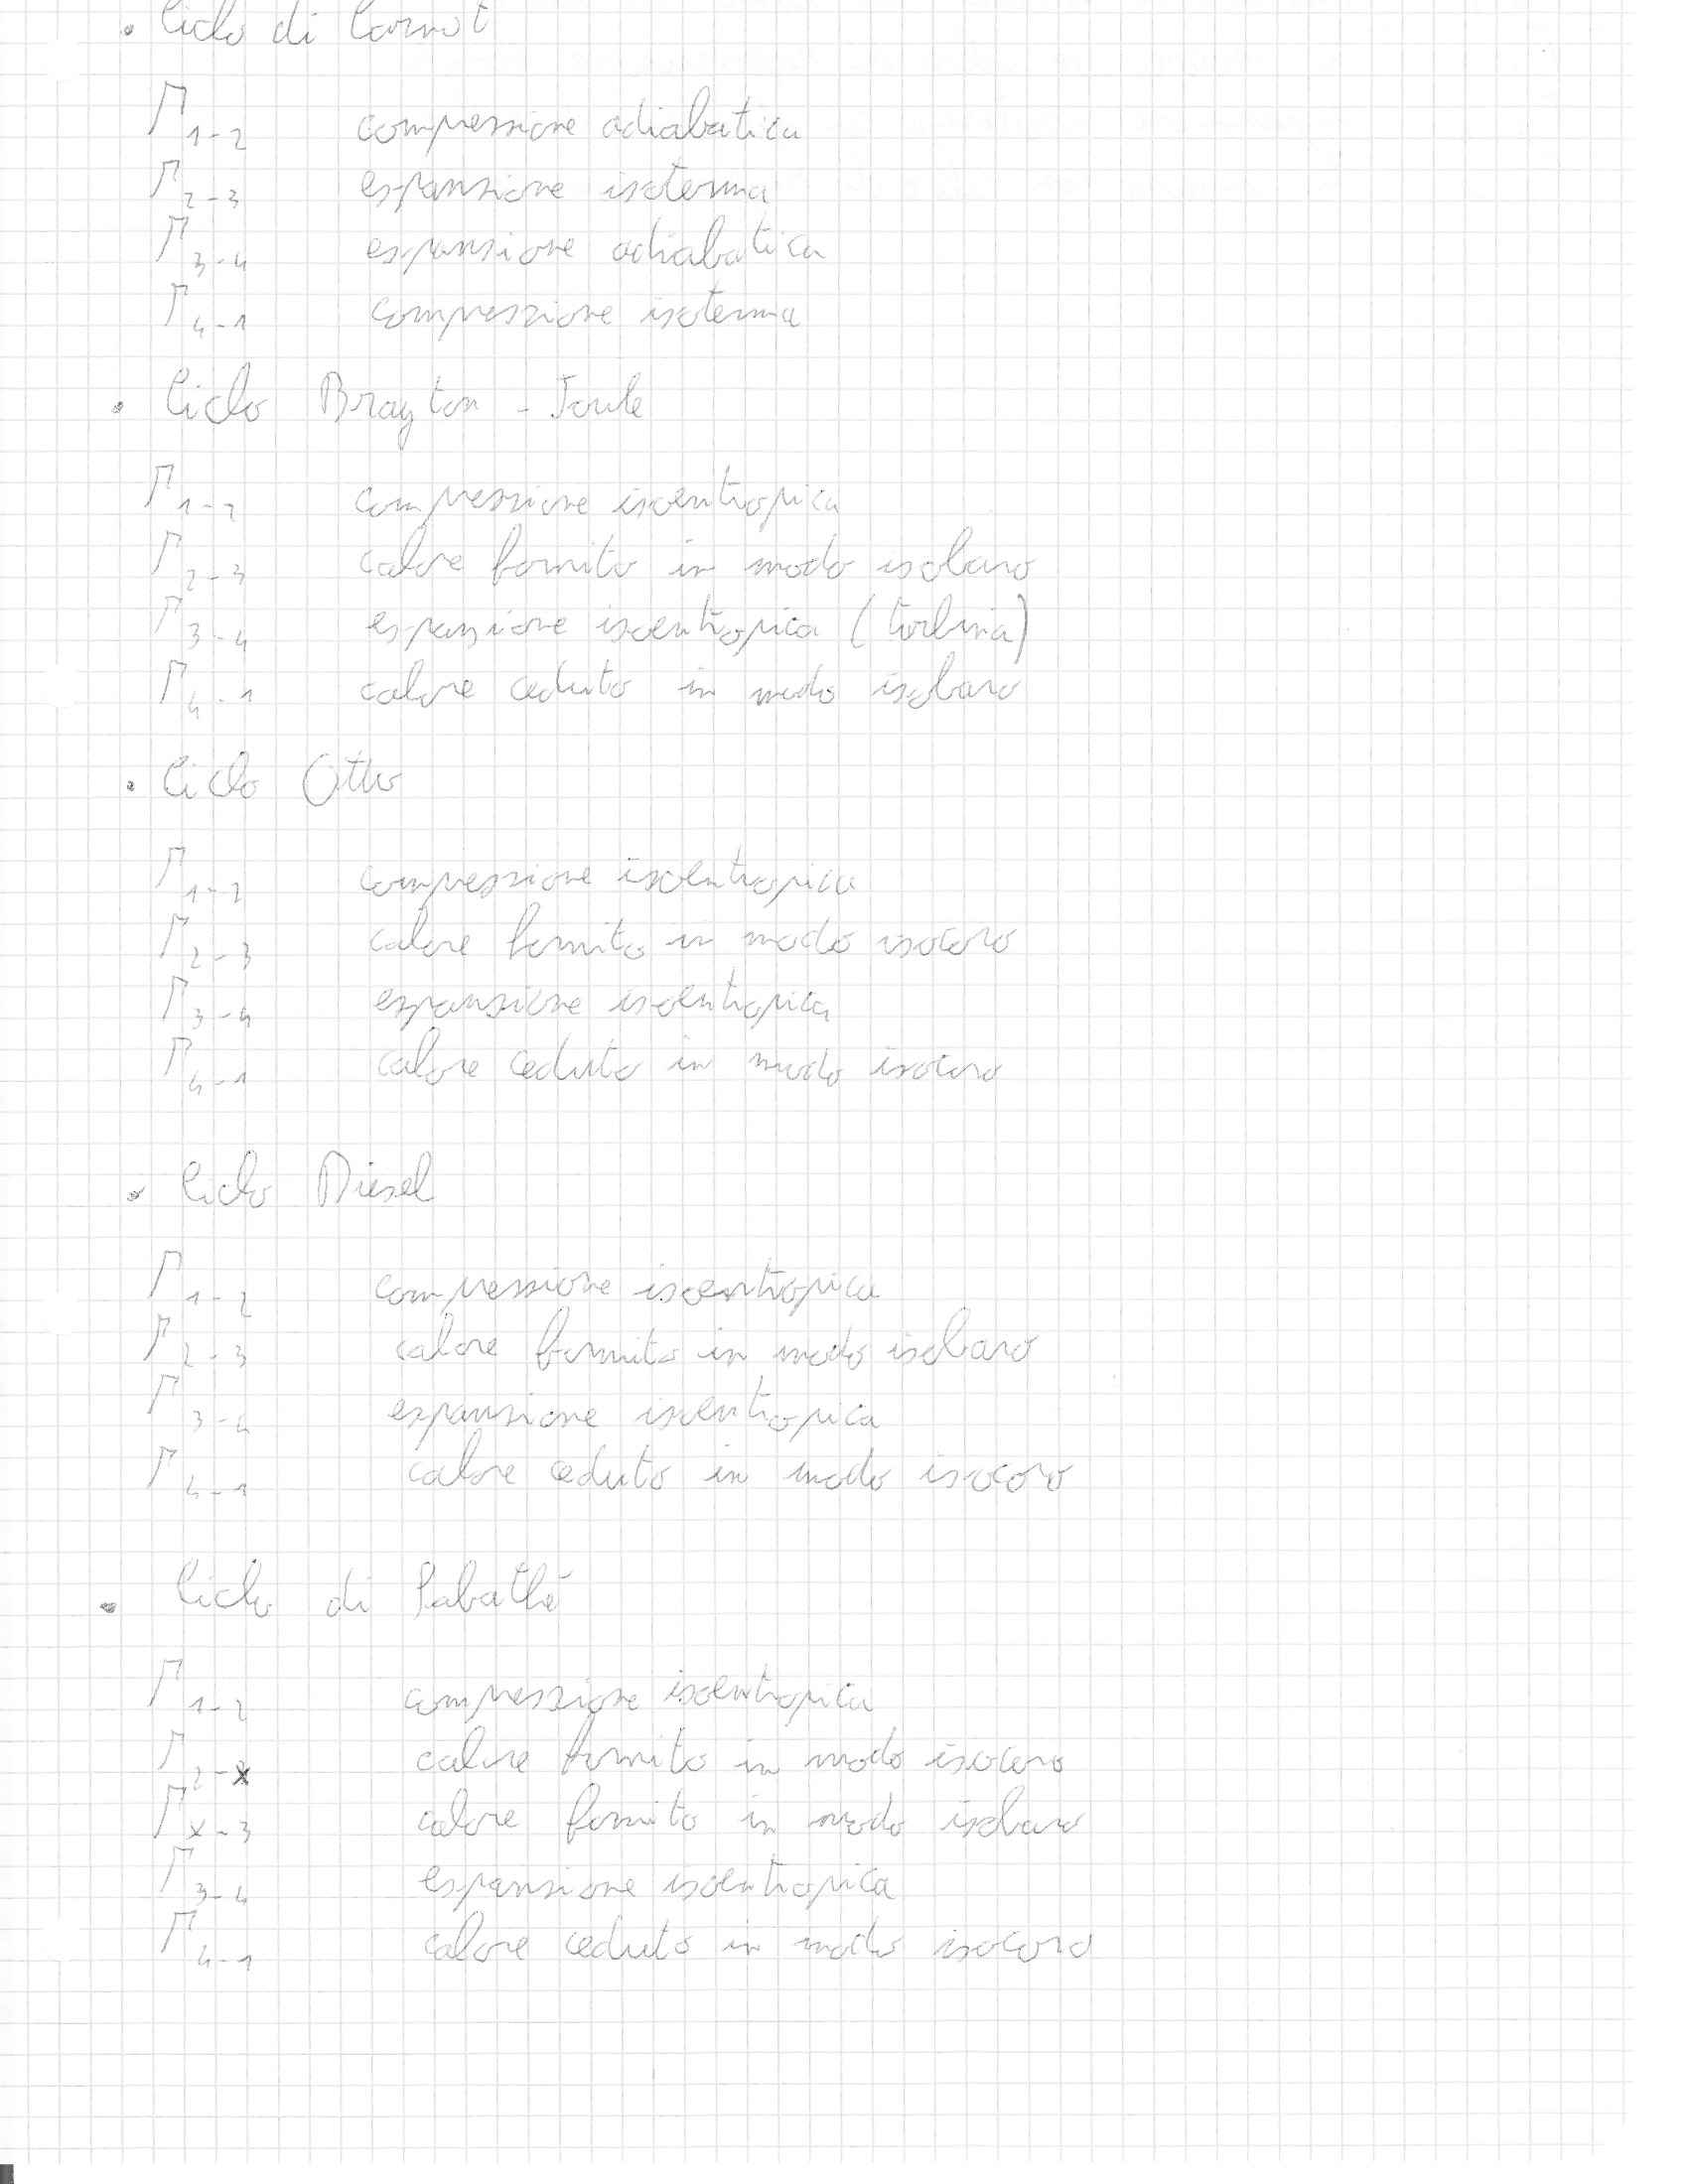 • Ciclo di Carnot
Γ1-2 compressione adiabatica
Γ2-3 espansione isoterma
Γ3-4 espansione adiabatica
Γ4-1 compressione isoterma
• Ciclo Brayton - Joule
Γ1-2 compressione isoentropica
Γ2-3 calore fornito in modo isobaro
Γ3-4 espansione isoentropica (turbina)
Γ4-1 calore ceduto in modo isobaro
• Ciclo Otto
Γ1-2 compressione isoentropica
Γ2-3 calore fornito in modo isocoro
Γ3-4 espansione isoentropica
Γ4-1 calore ceduto in modo isocoro
• Ciclo Diesel
Γ1-2 compressione isoentropica
Γ2-3 calore fornito in modo isobaro
Γ3-4 espansione isoentropica
Γ4-1 calore ceduto in modo isocoro
• Ciclo di Sabathé
Γ1-2 compressione isoentropica
Γ2-x calore fornito in modo isocoro
Γx-3 calore fornito in modo isobaro
Γ3-4 espansione isoentropica
Γ4-1 calore ceduto in modo isocoro